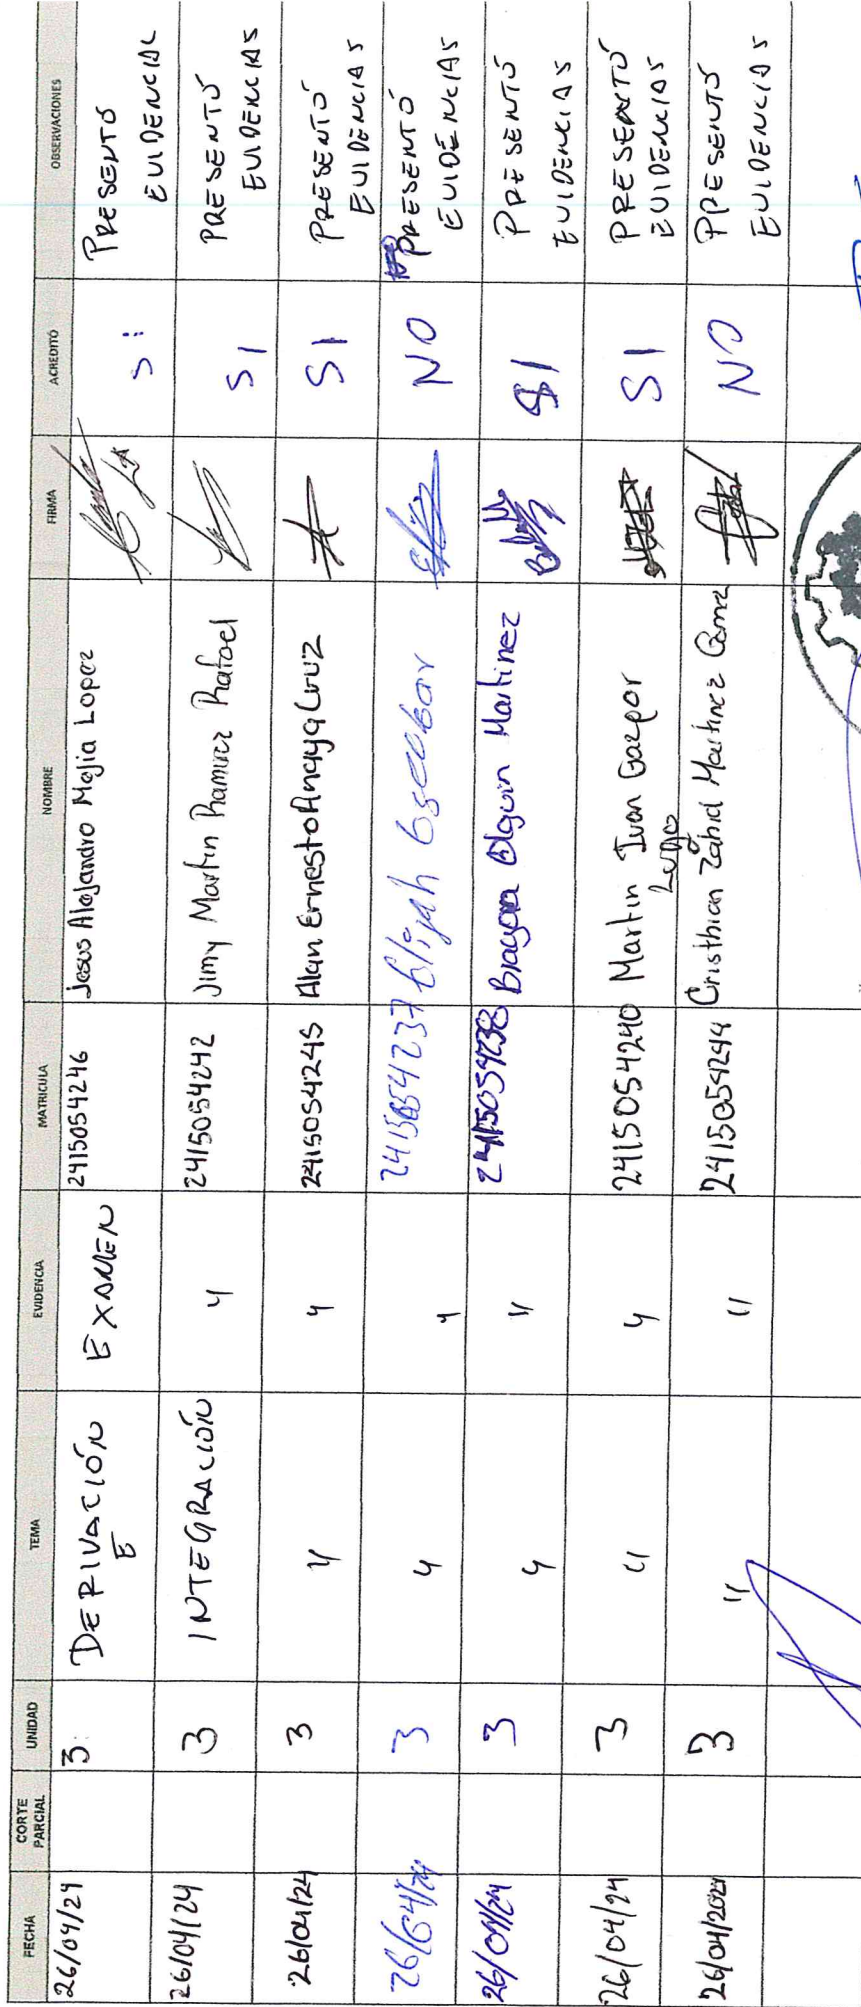 FECHA CORTE PARCIAL UNIDAD TEMA EVIDENCIA MATRICULA NOMBRE FIRMA ACREDITÓ OBSERVACIONES
26/04/24 3 DERIVACIÓN E EXAMEN 2415054246 Jesus Alejandro Mejia Lopez si PRESENTÓ EVIDENCIAS
26/04/24 3 INTEGRACIÓN " 2415054242 Jimy Martin Ramirez Rafael SI PRESENTÓ EVIDENCIAS
26/04/24 3 " " 2415054245 Alan Ernesto Anaya Cruz SI PRESENTÓ EVIDENCIAS
26/04/24 3 " " 2415054237 Elijah Escobar NO PRESENTÓ EVIDENCIAS
26/04/24 3 " " 2415054238 Brayan Olguin Martinez SI PRESENTÓ EVIDENCIAS
26/04/24 3 " " 2415054240 Martin Ivan Gaspar Lugo SI PRESENTÓ EVIDENCIAS
26/04/2024 3 " " 2415054244 Cristhian Zahid Martinez NO PRESENTÓ EVIDENCIAS